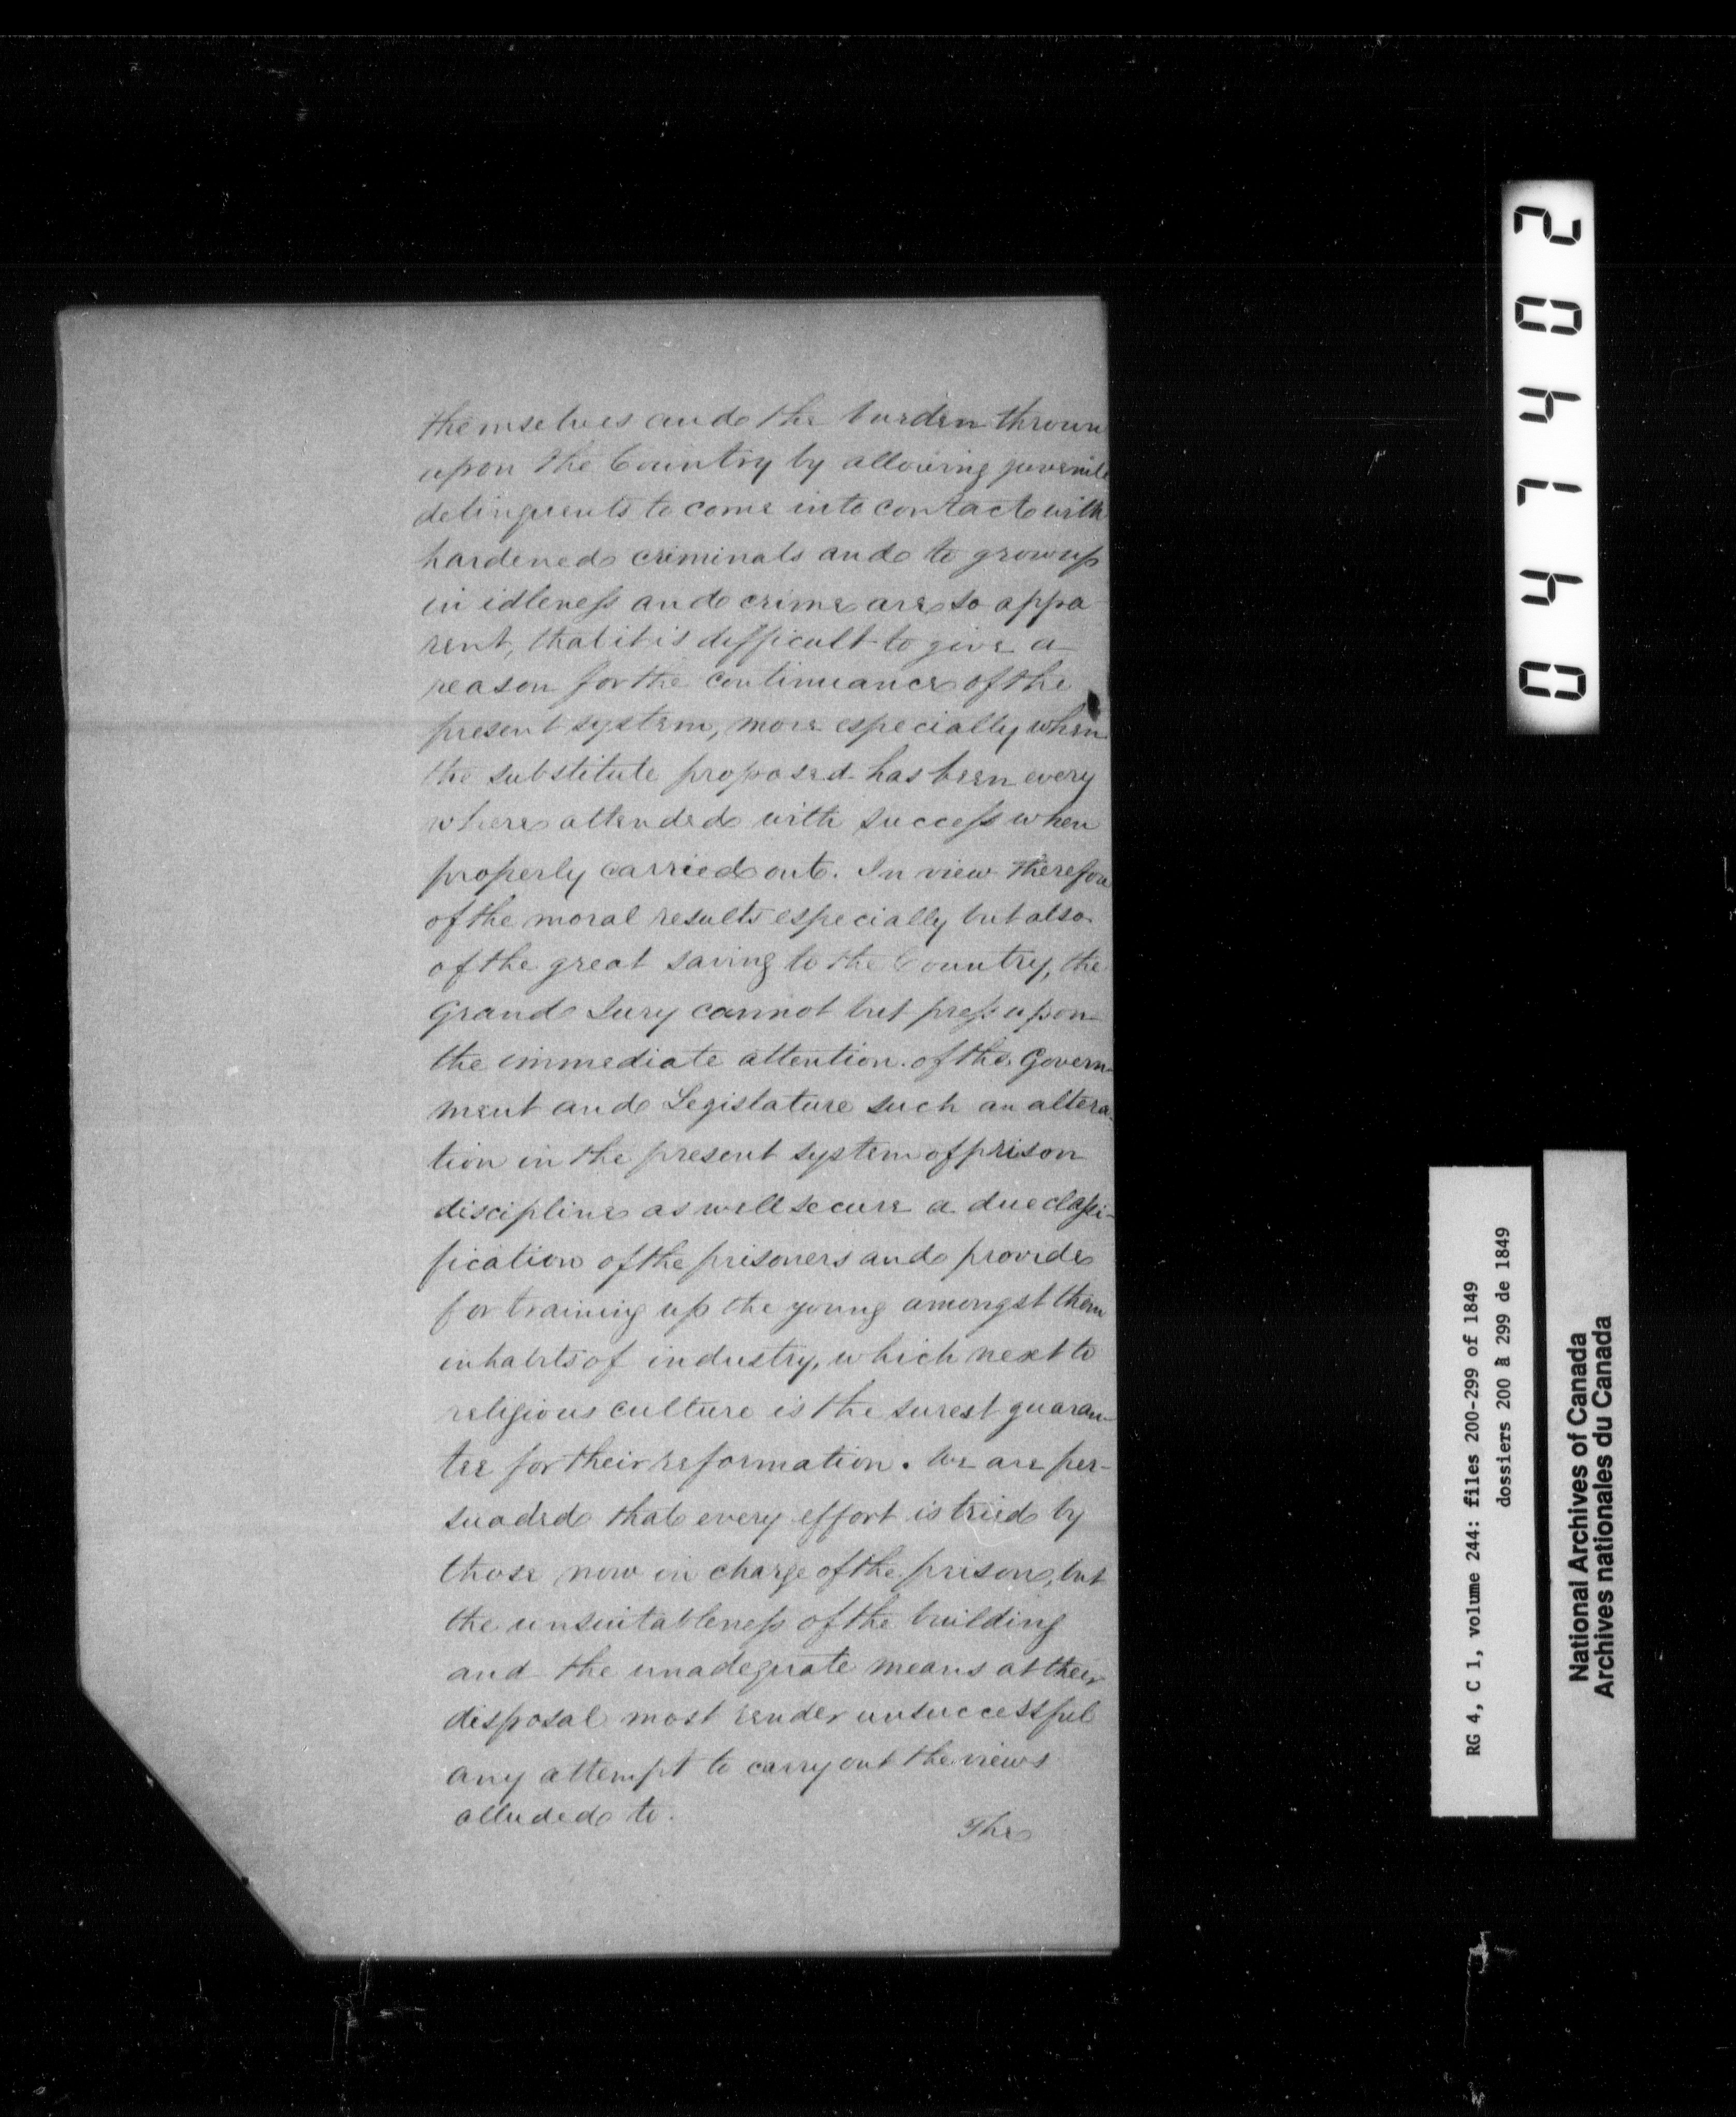 themselves and the burden thrown
upon the Country by allowing juvenile
delinquents to come into contact with
hardened criminals and to grow up
in idleness and crime are so appa-
rent, that it is difficult to give a
reason for the continuance of the
present system, more especially when
the substitute proposed has been every
where attended with success when
properly carried out. In view therefore
of the moral results especially but also
of the great saving to the Country, the
Grand Jury cannot but press upon
the immediate attention of the Govern-
ment and Legislature such an altera-
tion in the present system of prison
discipline as will secure a due classi-
fication of the prisoners and provide
for training up the young amongst them
in habits of industry, which next to
religious culture is the surest guaran-
tee for their reformation. We are per-
suaded that every effort is tried by
those now in charge of the prison, but
the unsuitableness of the building
and the inadequate means at their
disposal most render unsuccessful
any attempt to carry out the views
alluded to.
The
204740
RG 4, C 1, volume 244: files 200-299 of 1849
dossiers 200 à 299 de 1849
National Archives of Canada
Archives nationales du Canada